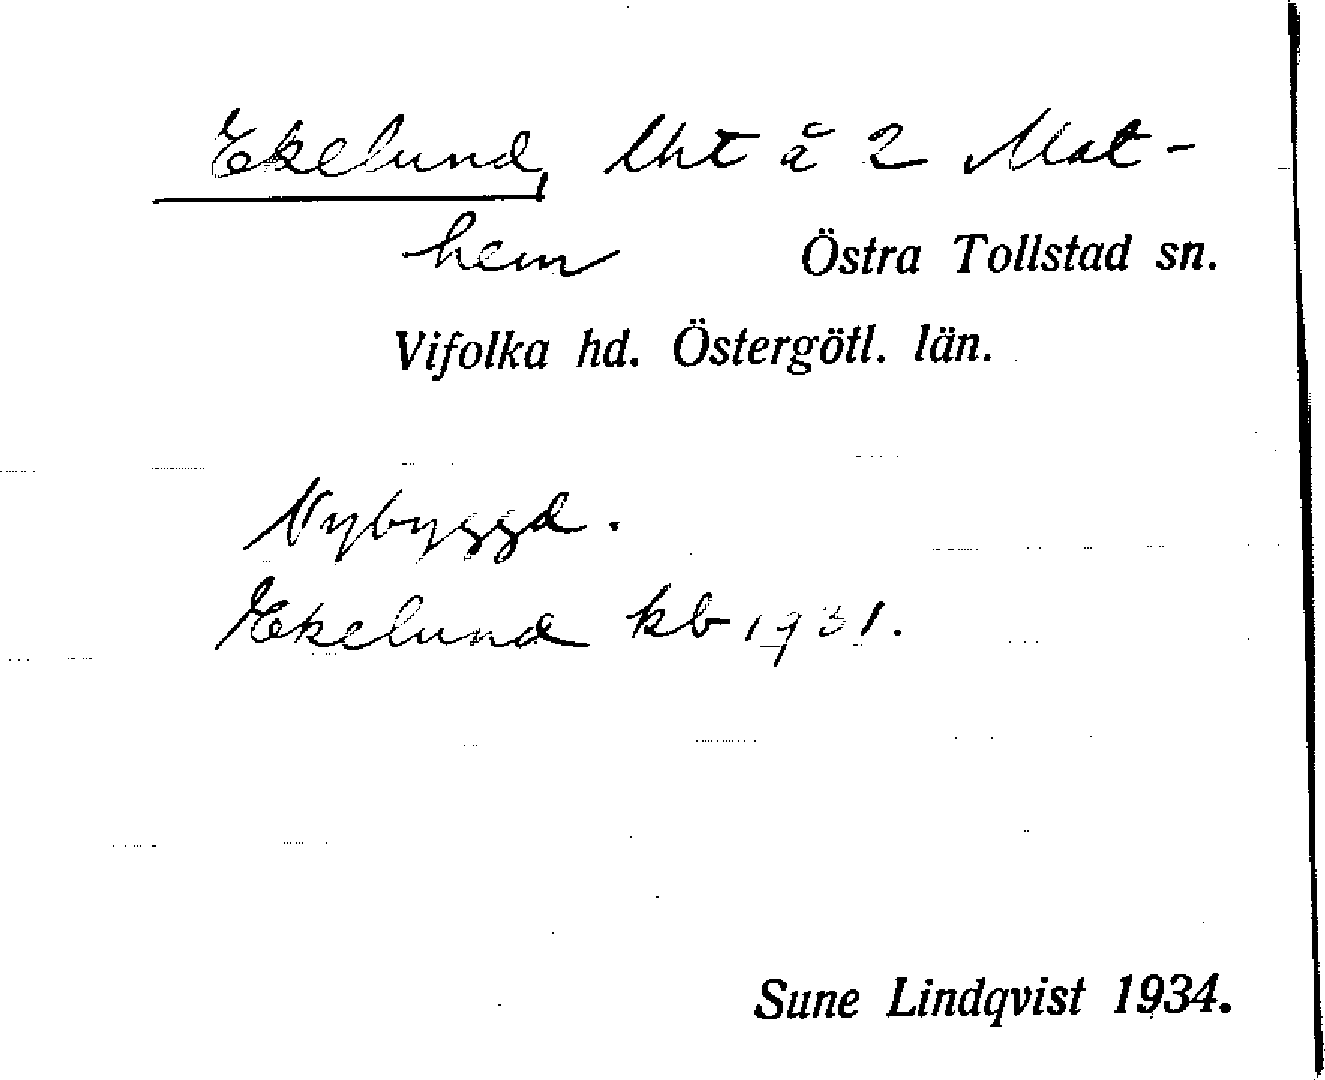 Ekelund, lht å 2 Mat-
hem Östra Tollstad sn.
Vifolka hd. Östergötl. län.
Nybyggd.
Ekelund kb 1931.
Sune Lindqvist 1934.